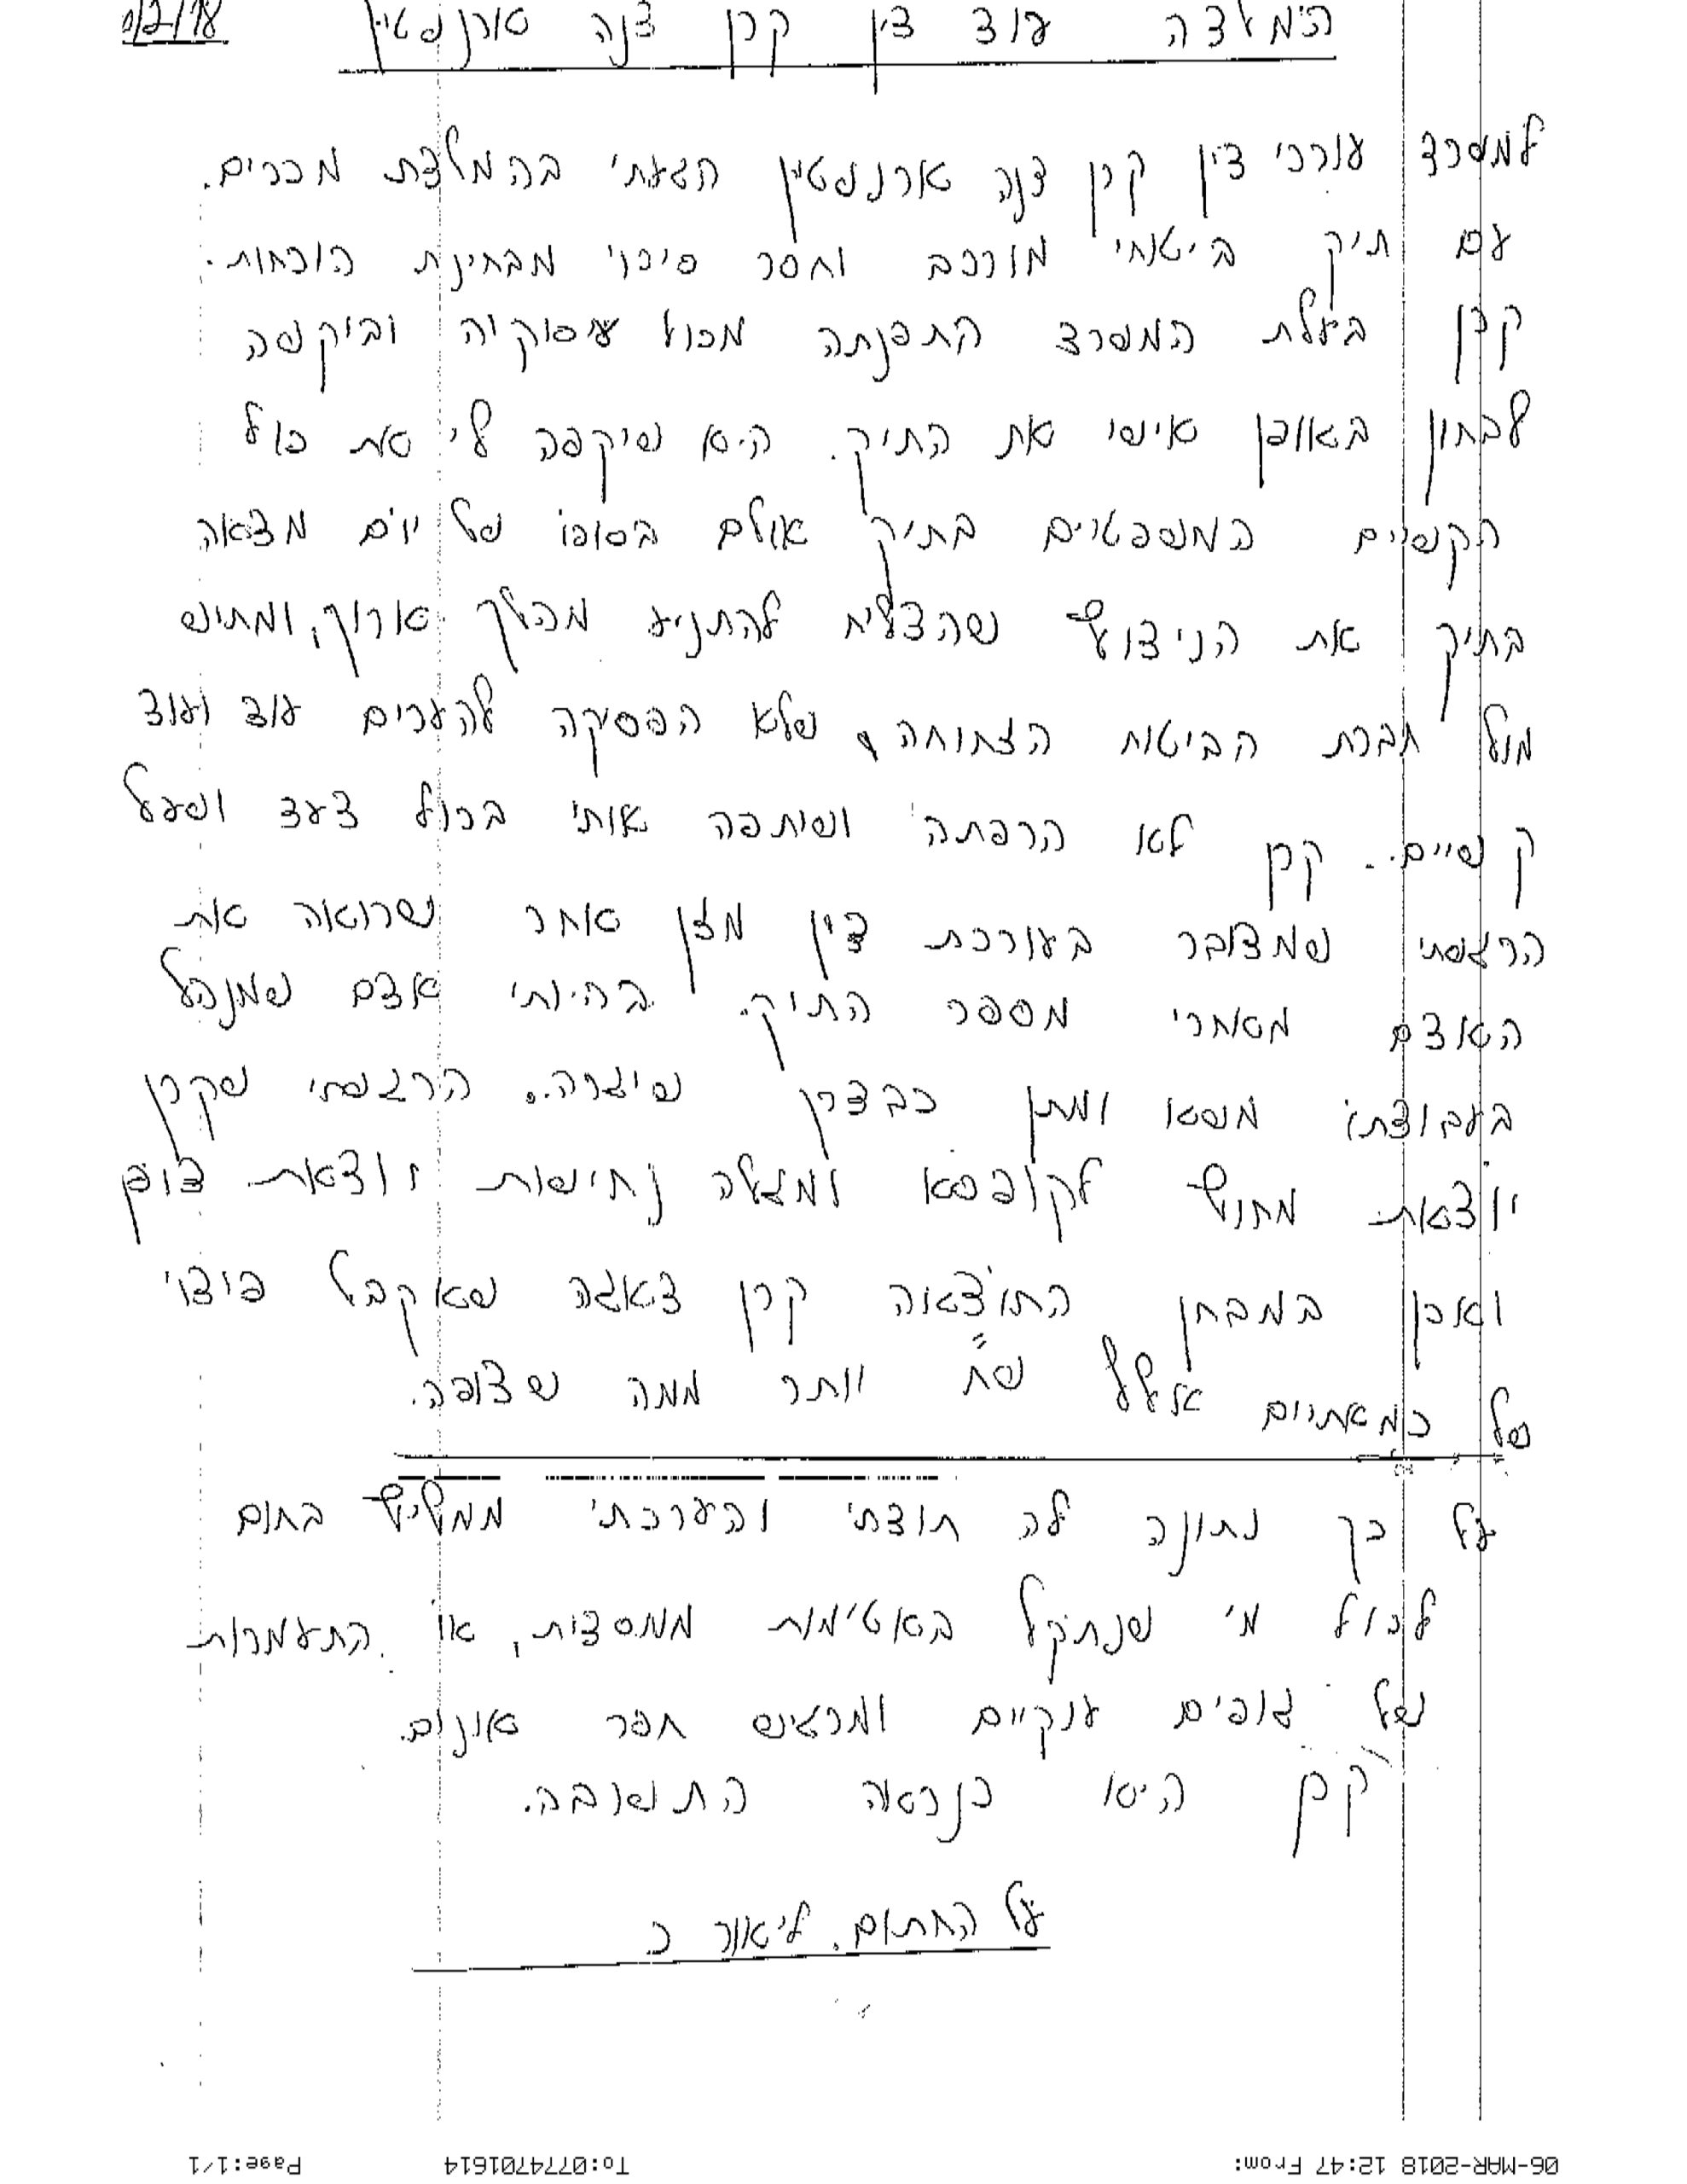 המלצה עוד דין קרן דנה ארנפטיין
למשרד עורכי דין קרן דנה ארנפטיין הגעתי בהמלצת מכרים.
עם תיק ביטוחי מורכב וחסר סיכוי מבחינת הוכחות.
קרן בעלת המשרד התפנתה מכול עיסוקיה וביקשה
לבחון באופן אישי את התיק. היא שיקפה לי את כול
הקשיים המשפטיים בתיק אולם בסופו של יום מצאה
בתיק את הניצוץ שהצליח להתניע מהלך ארוך, ומתיש
מול חברת הביטוח הצתוחה, שלא הפסיקה להערים עוד ועוד
קשיים.. קרן לא הרפתה ושיתפה אותי בכול צעד ושעל
הרגשתי שמדובר בעורכת דין מזן אחר שרואה את
האדם מאחרי מספר התיק. בהיותי אדם שמנהל
בעבודתו משא ומתן כבדרך שיגרה.. הרגשתי שקרן
יוצאת מחוץ לקופסא ומגלה נחישות יוצאת דופן
ואכן במבחן התוצאה קרן דאגה שאקבל פיצוי
של כמאתיים אלף ש"ח יותר ממה שצופה.
על כך נתונה לה תודתי והערכתי ממליץ בחום
לכול מי שנתקל באטימות ממסדית, או התעמרות
של גופים ענקיים ומרגיש חסר אונים.
קרן היא כנראה התשובה.
על החתום. ליאור כ
06-MAR-2018 12:47 From: To:0774701614 Page:1/1